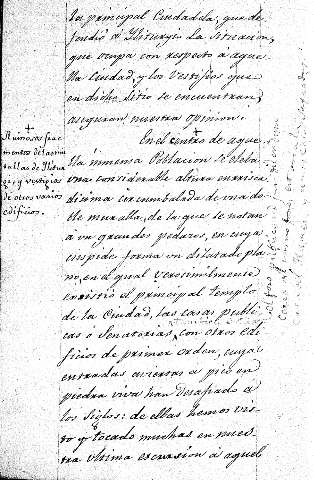 la principal Ciudadela, que de-
fendió á Yliturgis La Situacion,
que ocupa con respecto á aque-
lla Ciudad, y los Vestijios que
en dicho Sitio se encuentran,
aseguran nuestra opinion.
+
Ruinosos frac-
mentos de las mu-
rallas de Ylitur-
gi, y vestigios
de otros varios
edificios.
En el centro de aque-
lla inmensa Poblacion se eleba
una considerable altura enrisca-
disima circumbalada de una do-
ble muralla, de la que se notan
aun grandes pedazos, en cuya
cuspide forma un dilatado pla-
no, en el qual verosimilmente
existió el principal templo
de la Ciudad, las casas publi-
cas ó Senatorias, con otros edi-
ficios de primer orden, cuyas
entradas aviertas á pico en
piedra viva han desafiado á
los siglos: de ellas hemos vis-
to y tocado muchas en nues-
tra ultima excursion á aquel